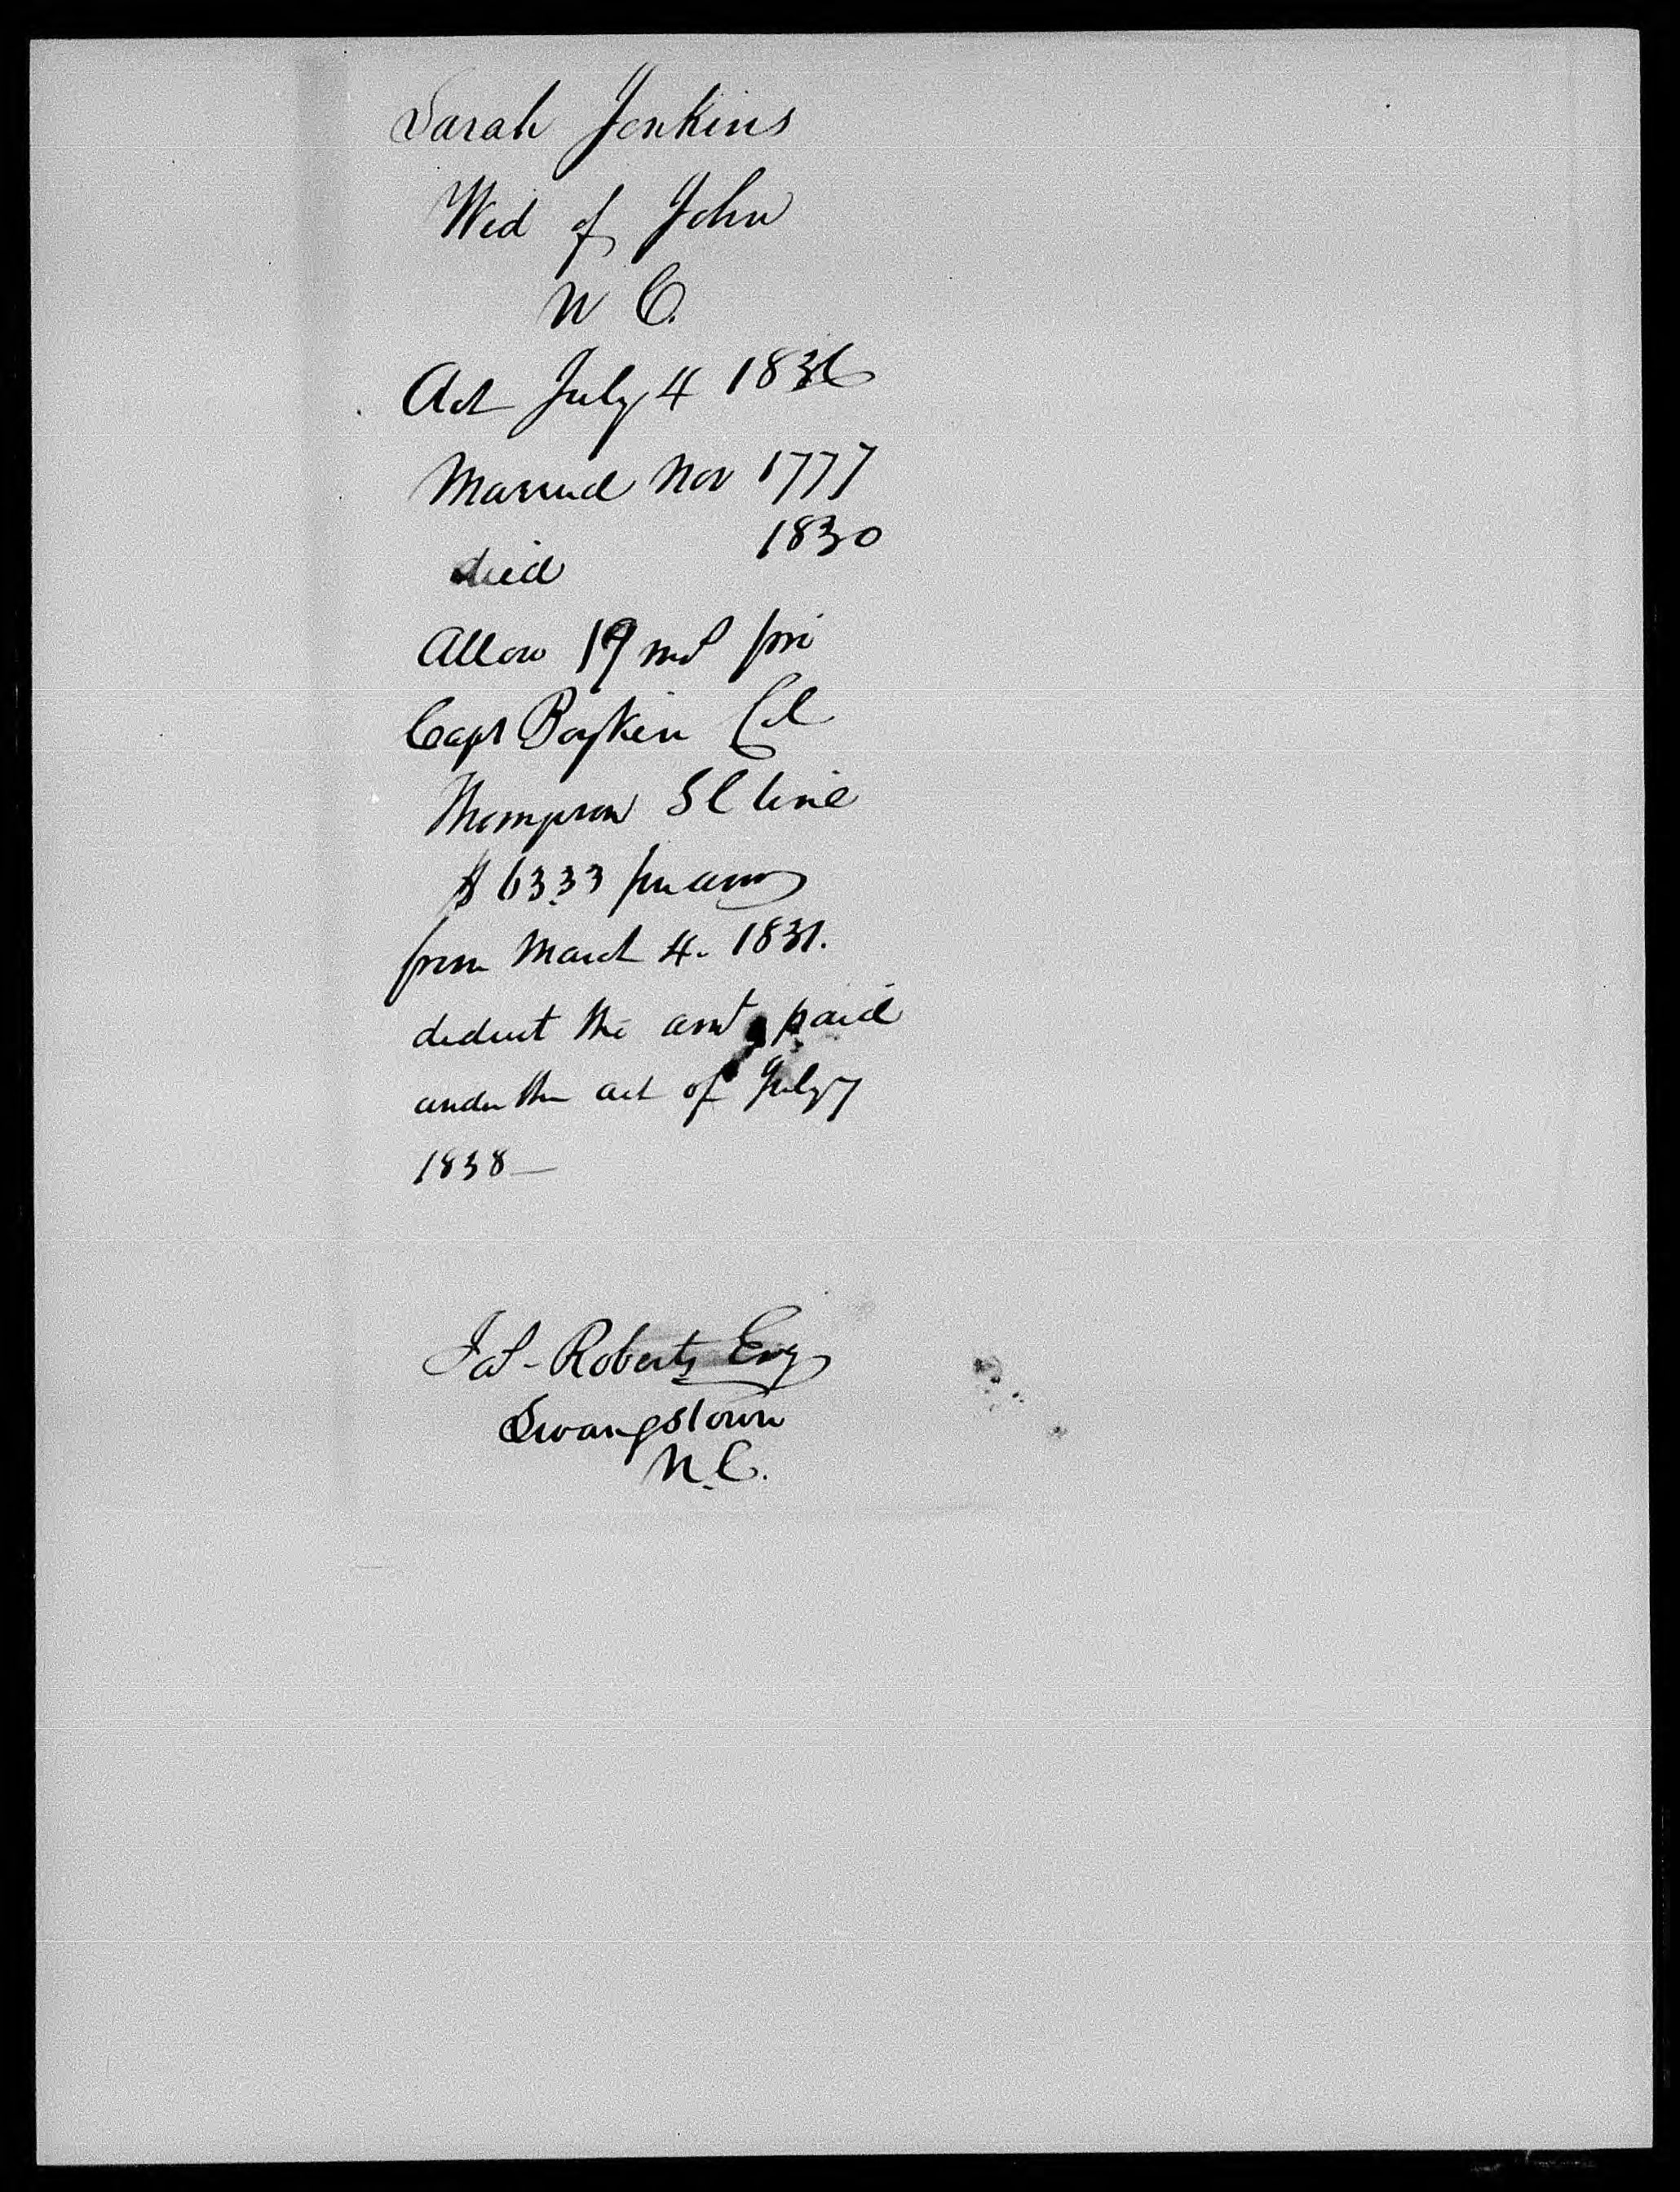 Sarah Jenkins
Wid of John
N C.
Act July 4 1836
Married Nov 1777
died 1830
Allow 19 mos pri
Capt Boykin Col
Thompson S C line
$ 63.33 per ann
from March 4. 1831.
deduct the amt paid
under the act of July 7
1838 —
Jas - Roberts Esq
Swangstown
N.C.